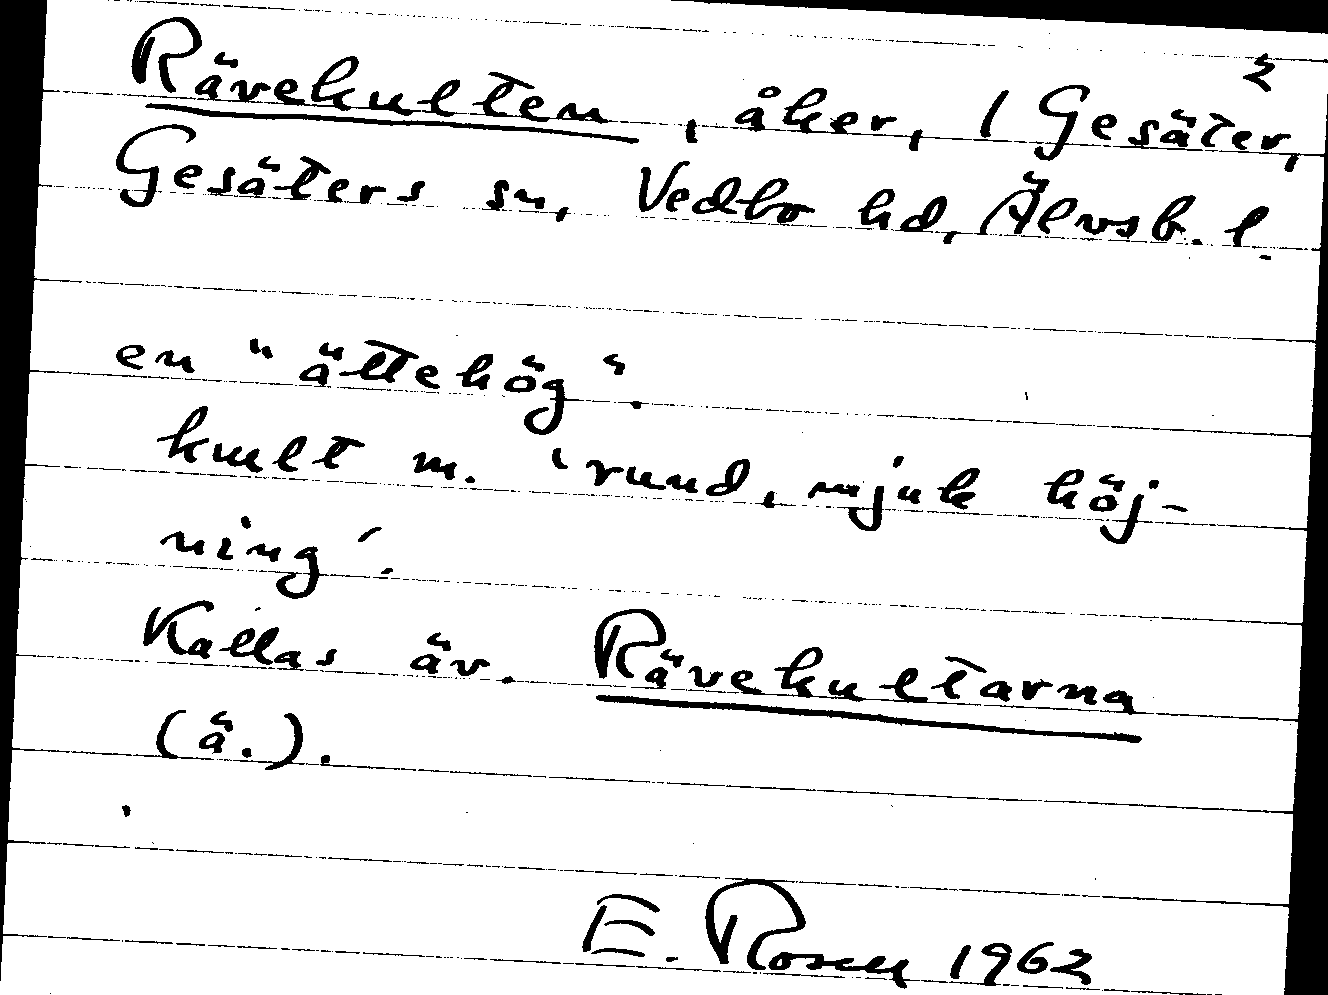 2
Rävekulten, åker, 1 Gesäter,
Gesäters sn, Vedbo hd, Älvsb. l.
en "ättehög".
kult m. 'rund, mjuk höj-
ning'.
Kallas äv. Rävekultarna
(ä.).
E. Rosen 1962